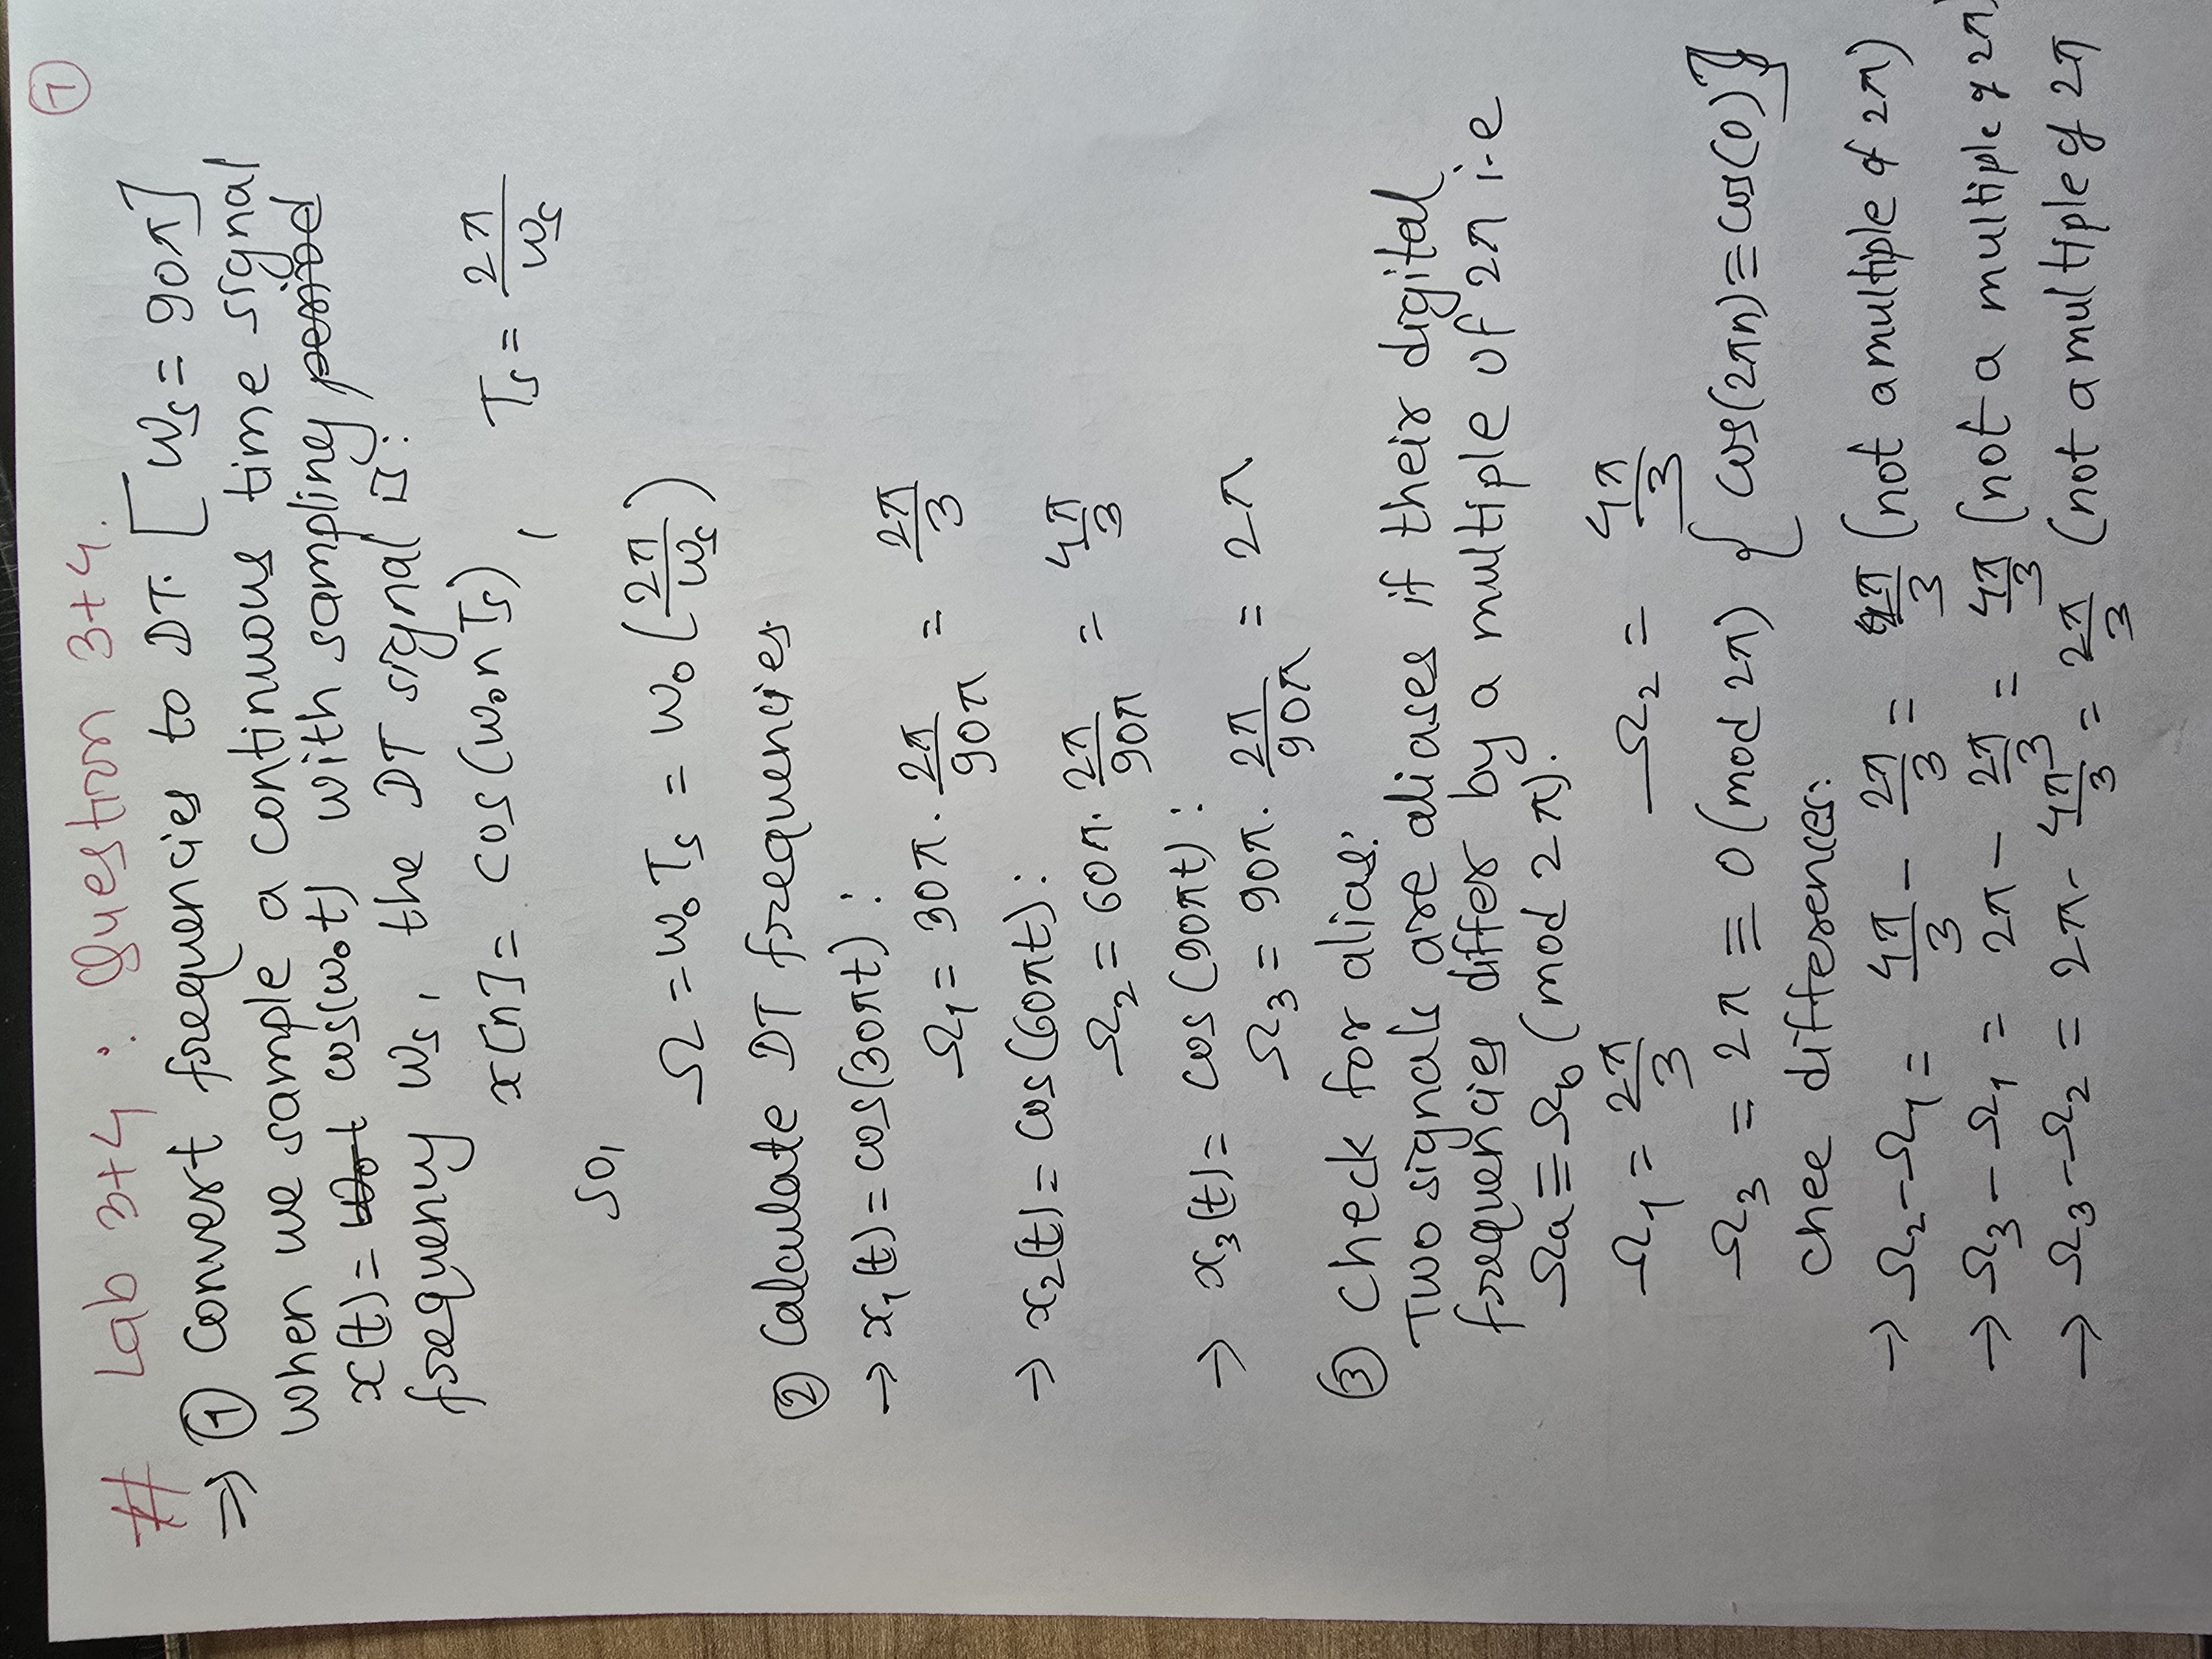 ①
# Lab 3+4 : Question 3+4.
⇒ ① Convert frequencies to DT. [ Ws = 90π]
when we sample a continuous time signal
x(t) = W₀t cos(w₀t) with sampling period
frequency Ws, the DT signal is:
x[n] = cos(w₀nTs), Ts = 2π/Ws
So,
Ω = W₀Ts = W₀(2π/Ws)
② Calculate DT frequencies
→ x₁(t) = cos(30πt) :
Ω₁ = 30π. 2π/90π = 2π/3
→ x₂(t) = cos(60πt) :
Ω₂ = 60π. 2π/90π = 4π/3
→ x₃(t) = cos(90πt) :
Ω₃ = 90π. 2π/90π = 2π
③ Check for alias:
Two signals are aliases if their digital
frequencies differ by a multiple of 2π i-e
Ωa ≡ Ωb (mod 2π).
Ω₁ = 2π/3 Ω₂ = 4π/3
Ω₃ = 2π ≡ 0 (mod 2π) { cos(2πn) ≡ cos(0)}
chee differences:
→ Ω₂ - Ω₁ = 4π/3 - 2π/3 = 2π/3 (not a multiple of 2π)
→ Ω₃ - Ω₁ = 2π - 2π/3 = 4π/3 (not a multiple of 2π)
→ Ω₃ - Ω₂ = 2π - 4π/3 = 2π/3 (not a multiple of 2π